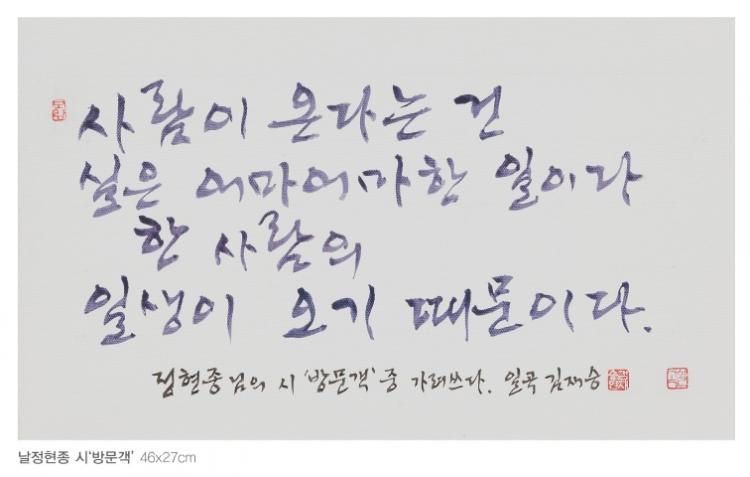 사람이 온다는 건
실은 어마어마한 일이다
한 사람의
일생이 오기 때문이다.
정현종님의 시 '방문객' 중 가려쓰다. 일곡 김재승
날정현종 시'방문객' 46x27cm